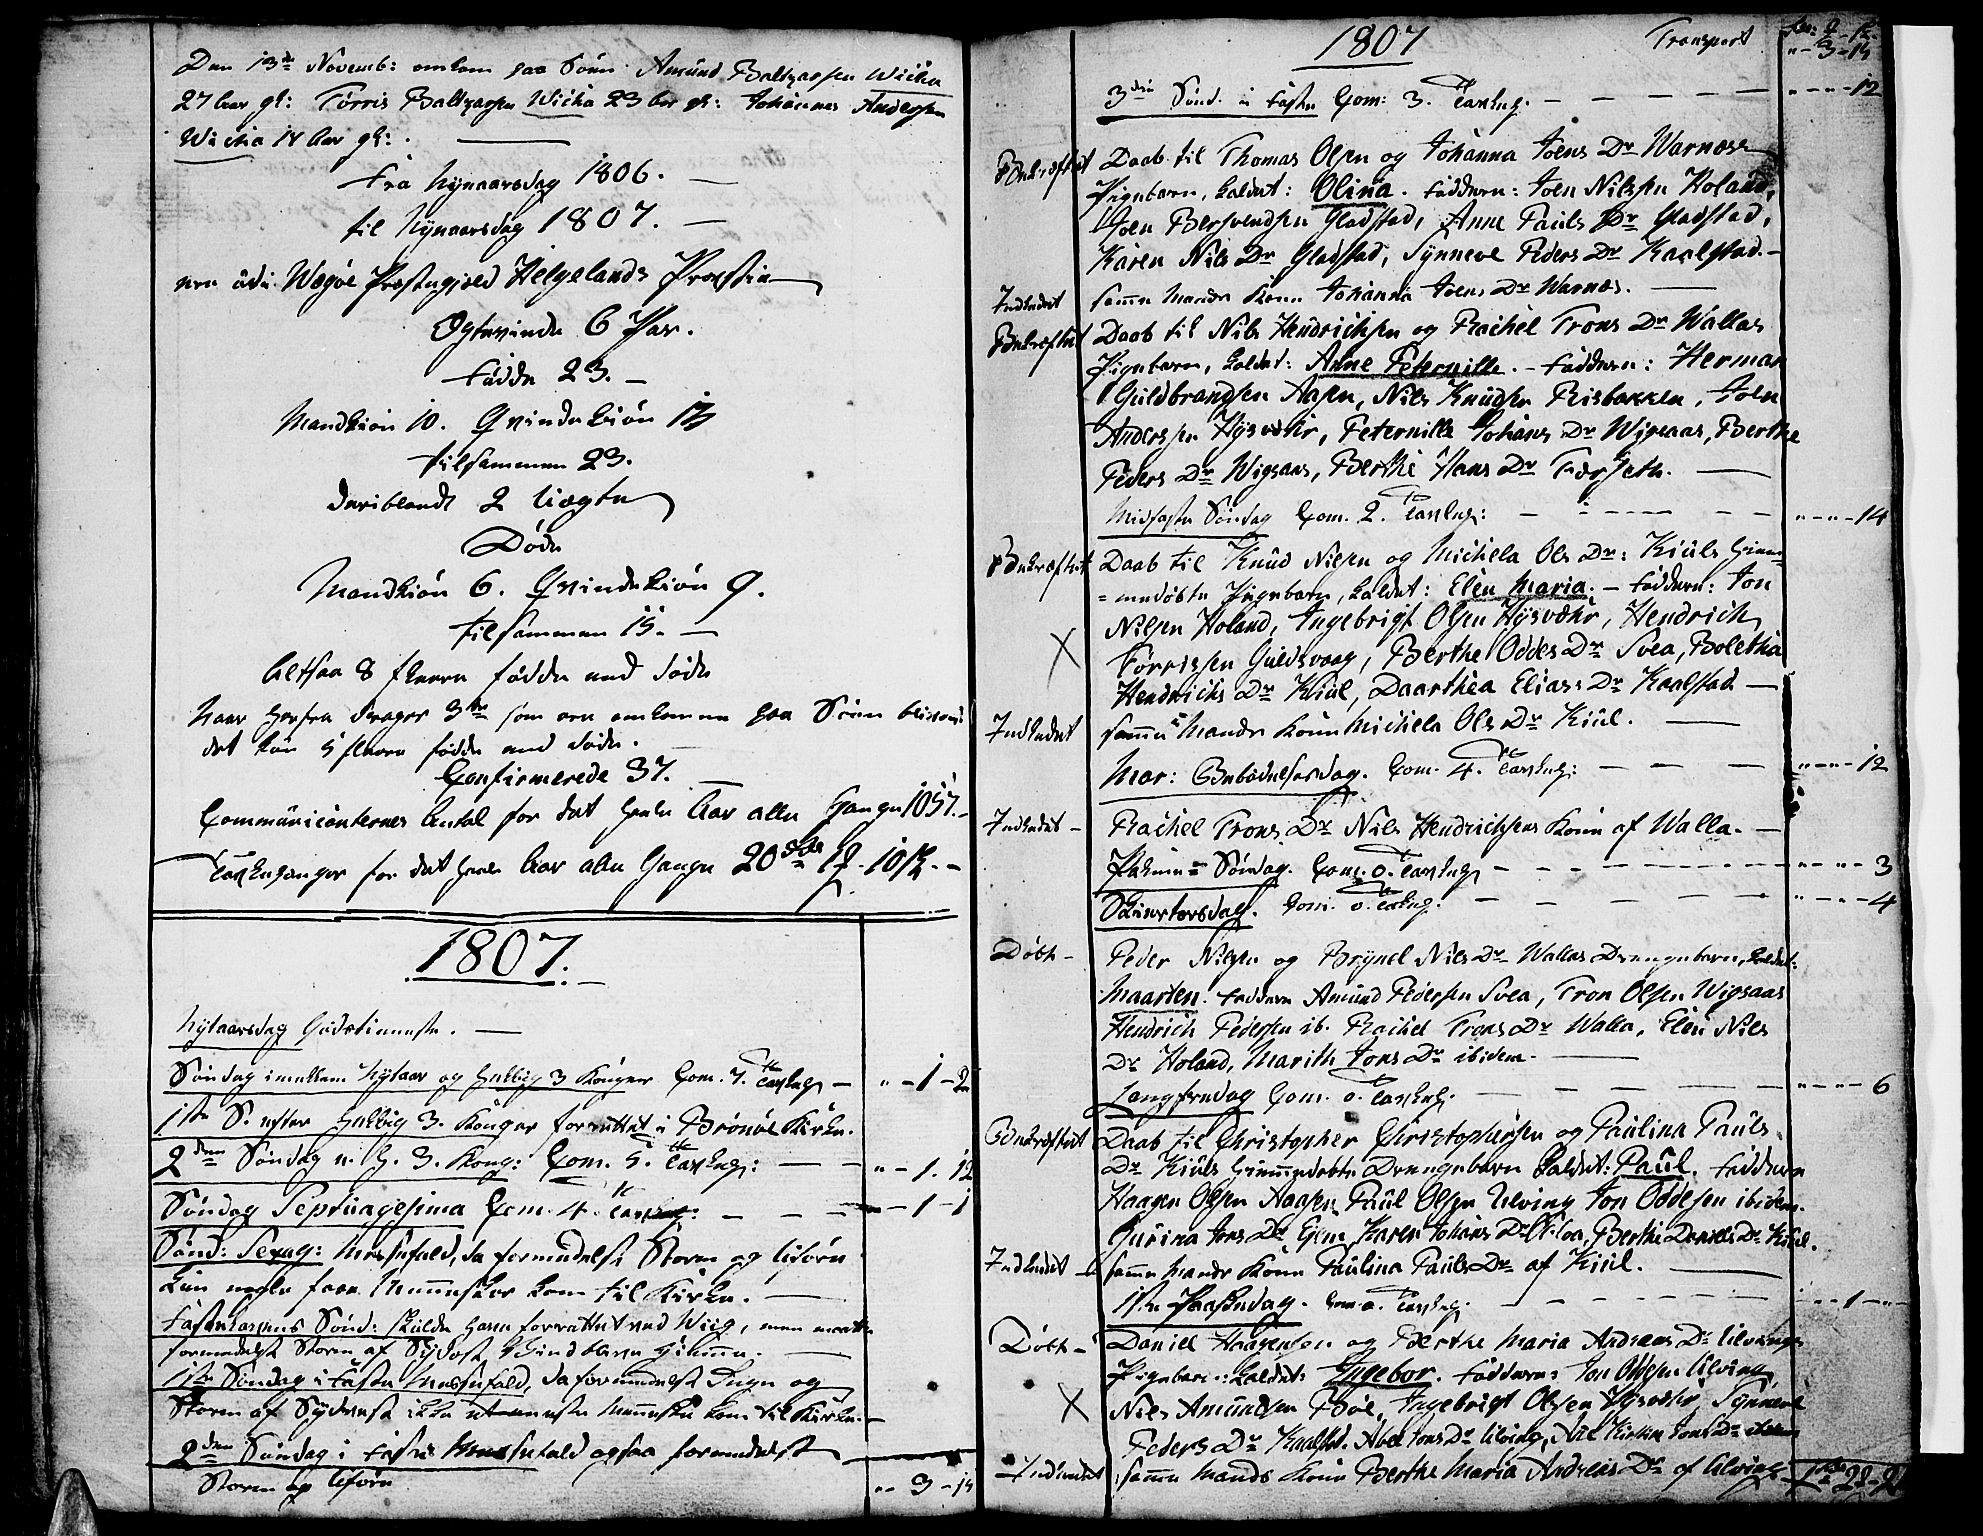 Den 13de Novemb: omkom paa Söen Amund Baltzarsen Wicha
27 Aar gl: Törris Baltzarsen Wicha 23 Aar gl: Johannes Andersen
Wicha 14 Aar gl:.
Fra Nynaarsdag 1806.
til Nynaarsdag 1807.
ere udi Wægöe Præstegjeld Helgelands Provstie
Ægteviede 6 Par.
Födde 23.
Mandkiön 10. Qvindekiön 13
tilsammen 23.
deriblandt 2 Uægte
Döde
Mandkiön 6. Qvindekiön 9.
tilsammen 15.
Altsaa 8 fleere födde end döde
Naar herfra drages 3de som ere omkomne paa Söen
det kun 5 fleere födde end döde.
Confirmerede 37.
Communicanternes Antal for det heele Aar alle Gange 1057.
Tavlepenger for det heele Aar alle Gange 20
1807.
Nytaarsdag Gudstieneste.
Söndag imellem Nytaar og Hellig 3 Konger Com. 7. Tavlepg - " - 1 - 2
1ste S. efter Hellig 3. Konger forrettet i Brönöe Kirke.
2den Söndag e. H. 3. Kong: Com. 5. Tavlepg: " - 1. 12
Söndag Septuagesima Com. 4. Tavlepg: - 1 - 1
Sönd: Sexag: Messefald, da formedelst Storm og Uföre
kun nogle faae Mennesker kom til Kirke.
Fastelavens Sönd: skulde have forrettet ved Wiig, men maatte
formedelst Storm af Sydost Wind blive hiemme.
1ste Söndag i Faste Messefald, da formedelst Regn og
Storm af Sydvest ikke et eeneste Menneske kom til Kirke.
2den Söndag i Faste Messefald ogsaa formedelst
Storm og Uföre
" 3 - 14
1807 Transport
" - 3 - 14
3die Sönd. i Faste Com: 3. Tavlepg. - - - - 12
Bekræftet Daab til Thomas Olsen og Johanna Joens Dr Warnæs
Pigebarn, kaldet: Olina. Faddere: Joen Nilssen Holand,
Joen Bersvendsen Gladstad, Anne Pauls Dr Gladstad,
Karen Nils Dr Gladstad, Synneve Peders Dr Kaalstad.
Indledet samme Mands Kone Johanna Joens Dr Warnæs.
Bekræftet Daab til Nils Hendrichsen og Rachel Trons Dr Wallas
Pigebarn, kaldet: Anne Peternille. - Faddere: Herman
Guldbrandsen Aasen, Nils Knudsen Risbakken, Joen
Anderssen Hysvær, Peternille Johans Dr Wigsaas, Berthe
Peders Dr Wigsaas, Berthe Hans Dr Forseth.
Midfaste Söndag Com. 2. Tavlepg: - - - - 14
Bekræftet Daab til Knud Nilsen og Michela Ols Dr: Kiüls hiem-
- medöbte Pigebarn, kaldet: Elen Maria. - Faddere: Jon
Nilsen Holand, Ingebrigt Olsen Hysvæhr, Hendrich
Törrissen Guldsvaag, Berthe Oddes Dr Svea, Boletha
Hendrichs Dr Kiül, Daarthea Elias Dr Kaalstad
Indledet samme Mands Kone Michela Ols Dr Kiül.
Mar: Bebudelsesdag. Com. 4. Tavlepg: - - - - 12
Indledet - Rachel Trons Dr Nils Hendrichsens Kone af Walla.
Palme = Söndag. Com. 0. Tavlepg - - - - 3
Skiertorsdag. Com. 0. Tavlepg. - - - - 4
Döbt - Peder Nilsen og Brynel Nils Dr Wallas Drengebarn, kaldet:
Maarten. Faddere Amund Pedersen Svea, Tron Olsen Wigsaas
Hendrich Pedersen ib. Rachel Trons Dr Walla, Elen Nils
Dr Holand, Marith Jons Dr ibidem.
Langfredag Com. 0. Tavlepg. - - - - 6
Bekræftet Daab til Christopher Christophersen og Paulina Pauls
Dr Kiüls hiemmedöbte Drengebarn kaldet: Paul. Faddere
Haagen Olsen Aasen, Paul Olsen Ulving Jon Oddesen ibidem.
Gurina Jens Dr Karen Johans Dr Berthe Daniels Dr Kiül.
Indledet - samme Mands Kone Paulina Pauls Dr af Kiül.
1ste Paaskedag. Com. 0. Tavlepg. - - - 1
Döbt - Daniel Haagensen og Berthe Maria Andreas Dr Ulvings
Pigebarn: kaldet: Ingebor. Faddere: Jon Olsen Ulving
Nils Amundsen Böe, Ingebrigt Olsen Hysvæhr, Synneve
Peders Dr Kaalstad. Abel Jons Dr Ulving, Jons Dr ibidem
Indledet samme Mands Kone Berthe Maria Andreas Dr af Ulving